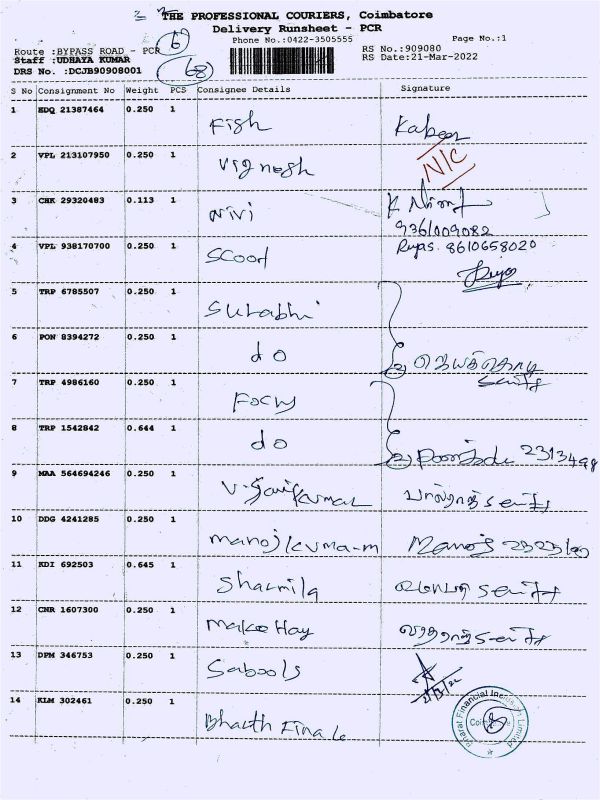 THE PROFESSIONAL COURIERS, Coimbatore
Delivery Runsheet - PCR
Phone No.:0422-3505555
Page No.:1
Route :BYPASS ROAD - PCR
RS No.:909080
Staff :UDHAYA KUMAR
RS Date:21-Mar-2022
DRS No. :DCJB90908001
6
68
S No Consignment No Weight PCS Consignee Details Signature
1 EDQ 21387464 0.250 1 Fish Kabeer
2 VPL 213107950 0.250 1 Vignesh N/C
3 CHK 29320483 0.113 1 Nivi K
9361009082
4 VPL 938170700 0.250 1 Scoot Rupas. 8610658020
5 TRP 6785507 0.250 1 Surabhi
6 PON 8394272 0.250 1 do
7 TRP 4986160 0.250 1 Focus
8 TRP 1542842 0.644 1 do 2313498
9 MAA 564694246 0.250 1
10 DDG 4241285 0.250 1 manojkuma-m Manoj
11 KDI 692503 0.645 1 Sharmila
12 CNR 1607300 0.250 1 Make Hay
13 DPM 346753 0.250 1 Sabools
14 KLM 302461 0.250 1 Bharth
Bharat Financial Inclusion Limited